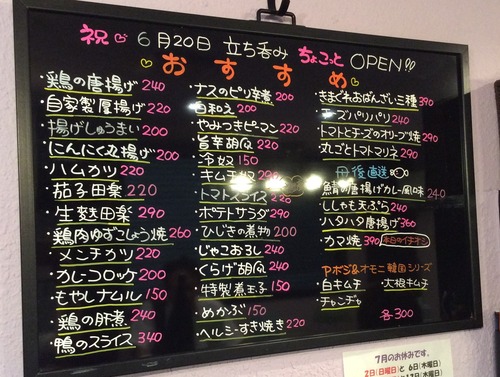 祝 6月20日 立ち呑み ちょこっと OPEN!!
おすすめ
・鶏の唐揚げ 240
・自家製厚揚げ 220
・揚げしゅうまい 200
・にんにく丸揚げ 200
・ハムカツ 220
・茄子田楽 220
・生麩田楽 290
・鶏肉ゆずこしょう焼 260
・メンチカツ 220
・カレーコロッケ 200
・もやしナムル 150
・鶏の肝煮 240
・鴨のスライス 340
・ナスのピリ辛煮 200
・白和え 200
・やみつきピーマン 220
・旨辛胡瓜 220
・冷奴 150
・キムチ奴 200
・トマトスライス 220
・ポテトサラダ 290
・ひじきの煮物 200
・じゃこおろし 240
・くらげ胡瓜 240
・特製煮玉子 150
・めかぶ 150
・ヘルシーすき焼き 220
・きまぐれおばんざい三種 390
ーズパリパリ 240
・トマトとチーズのオリーブ焼 290
・丸ごとトマトマリネ 290
丹後直送
・鯖の唐揚げカレー風味 240
・ししゃも天ぷら 240
・ハタハタ唐揚げ 360
・カマ焼 390 本日のイチオシ
アボジ&オモニ韓国シリーズ
・白キムチ ・大根キムチ
・チャンヂャ
各300
7月のお休みです。
2日(日曜日)と 6日(木曜日)